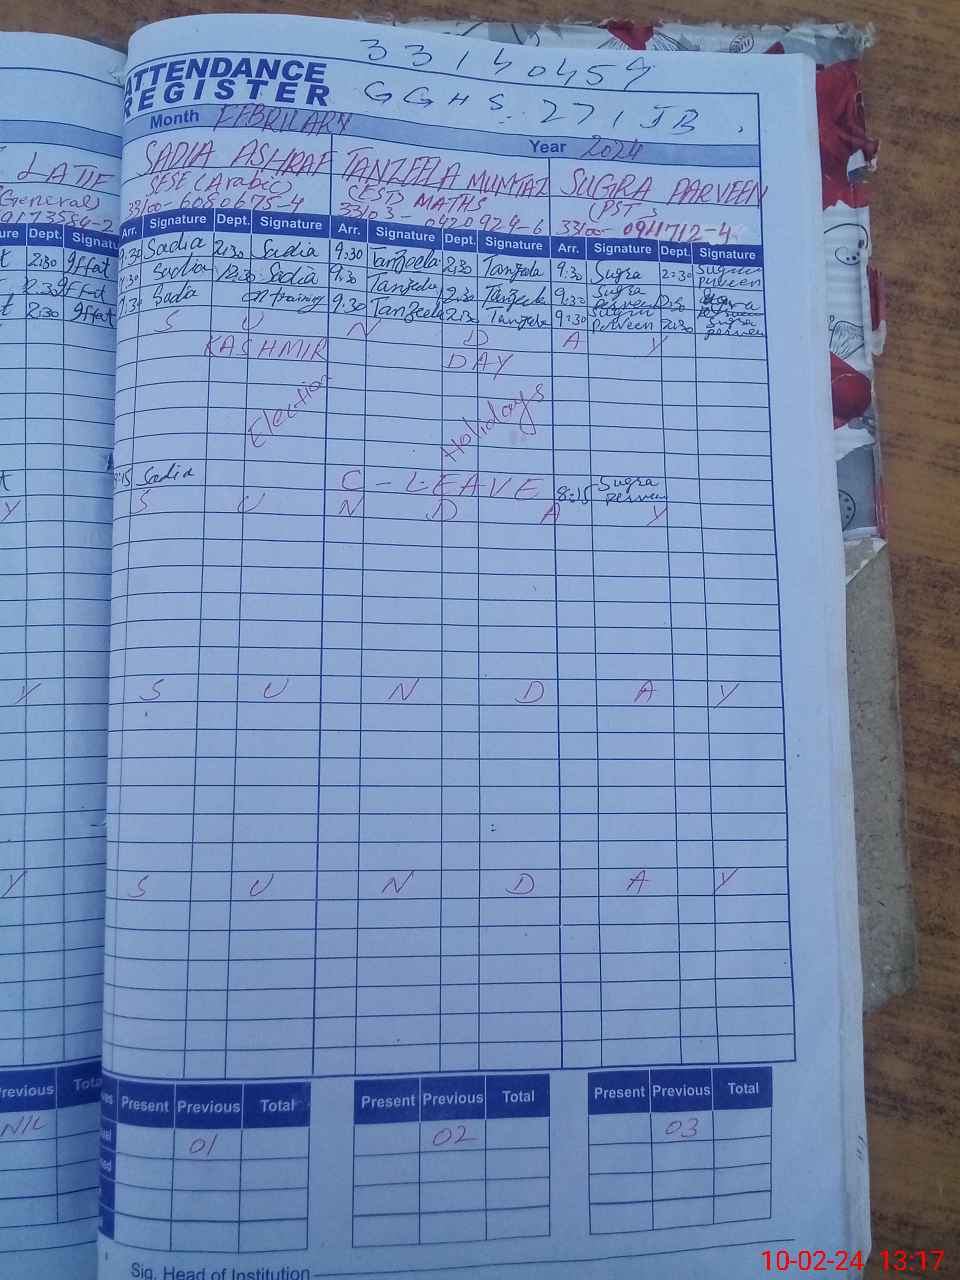 33140454
ATTENDANCE
REGISTER
GGHS. 271 JB.
Month FEBRUARY
Year 2024
LATIF SADIA ASHRAF TANZEELA MUMTAZ SUGRA PARVEEN
General) SESE (Arabic) (EST) MATHS (PST)
33100-6050675-4 33103-0420924-6 33100-0911712-4
Signature Dept. Signature Arr. Signature Dept. Signature Arr. Signature Dept. Signature
2:30 Iffat 9:30 Sadia 2:30 Sadia 9:30 Tanzeela 2:30 Tanzeela 9:30 Sugra 2:30 Sugra parveen
2:30 Iffat 9:30 Sadia 12:30 Sadia 9:30 Tanzeela 12:30 Tanzeela 9:30 Sugra perveen
2:30 Iffat 9:30 Sadia on training 9:30 Tanzeela 2:30 Tanzeela 9:30 Sugra perveen 2:30 Sugra perveen
S U N D A Y
KASHMIR DAY
Election Holidays
8:15 Sadia C-LEAVE 8:15 Sugra perveen
Y S U N D A Y
Y S U N D A Y
Y S U N D A Y
Previous Total Present Previous Total Present Previous Total Present Previous Total
NIL 01 02 03
Sig. Head of Institution
10-02-24 13:17